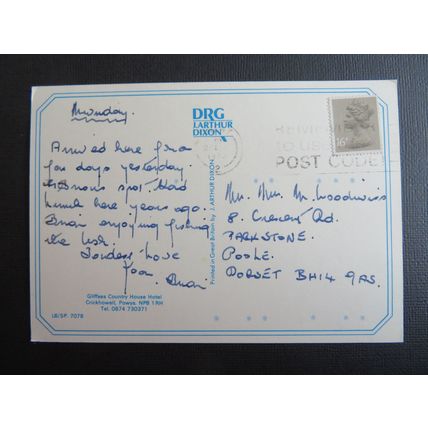 Monday.
Arrived here for a
few days yesterday.
spot. Had
lunch here years ago.
enjoying fishing
the Usk.
love
DRG
J.ARTHUR
DIXON
Printed in Great Britain by J. ARTHUR DIXON
REMEMBER
TO USE
POST CODE
16P
Mr. Mrs. M. Woodwiss
8. Crescent Rd.
PARKSTONE.
POOLE.
DORSET BH14 9AS.
Gliffaes Country House Hotel
Crickhowell, Powys. NP8 1RH
Tel. 0874 730371
LB/SP. 7078